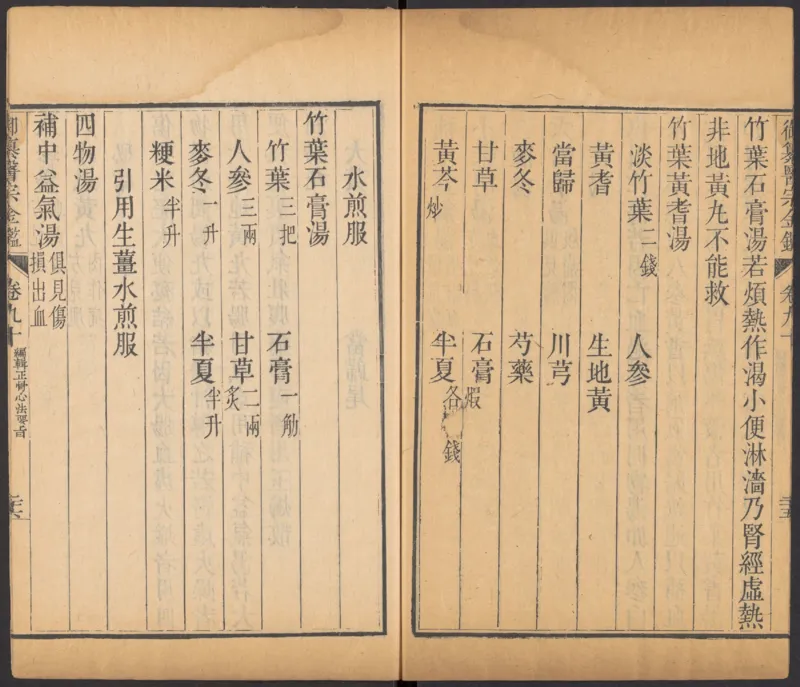 御纂醫宗金鑑 卷九十
竹葉石膏湯若煩熱作渴小便淋濇乃腎經虛熱
非地黃丸不能救
竹葉黃耆湯
淡竹葉二錢 人參
黃耆 生地黃
當歸 川芎
麥冬 芍藥
甘草 石膏煅
黃芩炒 半夏各 錢
水煎服
竹葉石膏湯
竹葉三把 石膏一觔
人參三兩 甘草二兩炙
麥冬一升 半夏半升
粳米半升
引用生薑水煎服
四物湯
補中益氣湯俱見傷損出血
御纂醫宗金鑑 卷九十 編輯正骨心法要旨